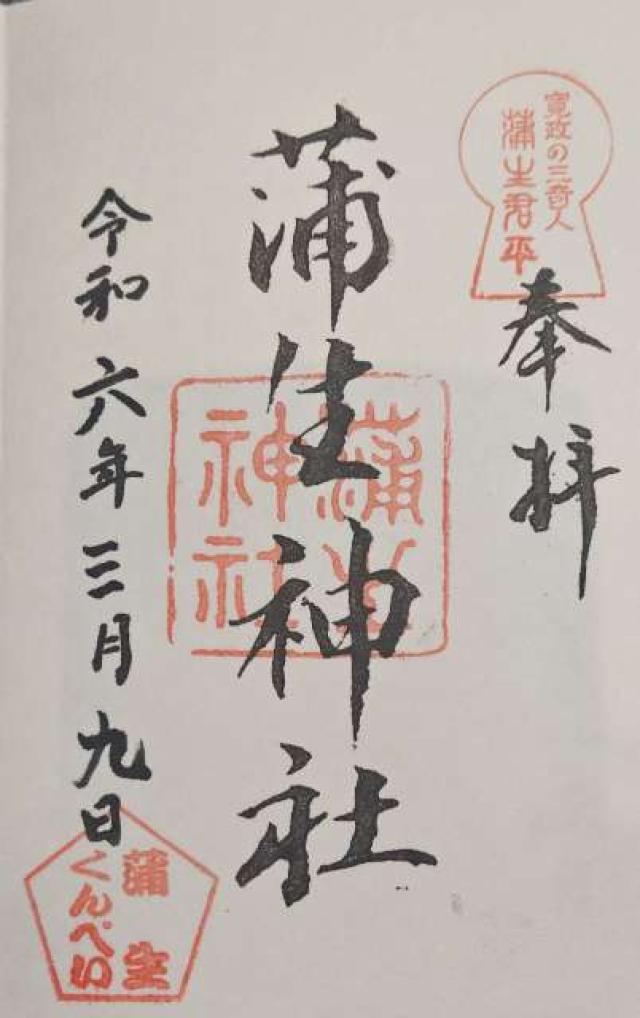 寛政の三奇人
蒲生君平
奉拝
蒲生神社
蒲生
神社
令和六年三月九日
蒲生
くんぺい